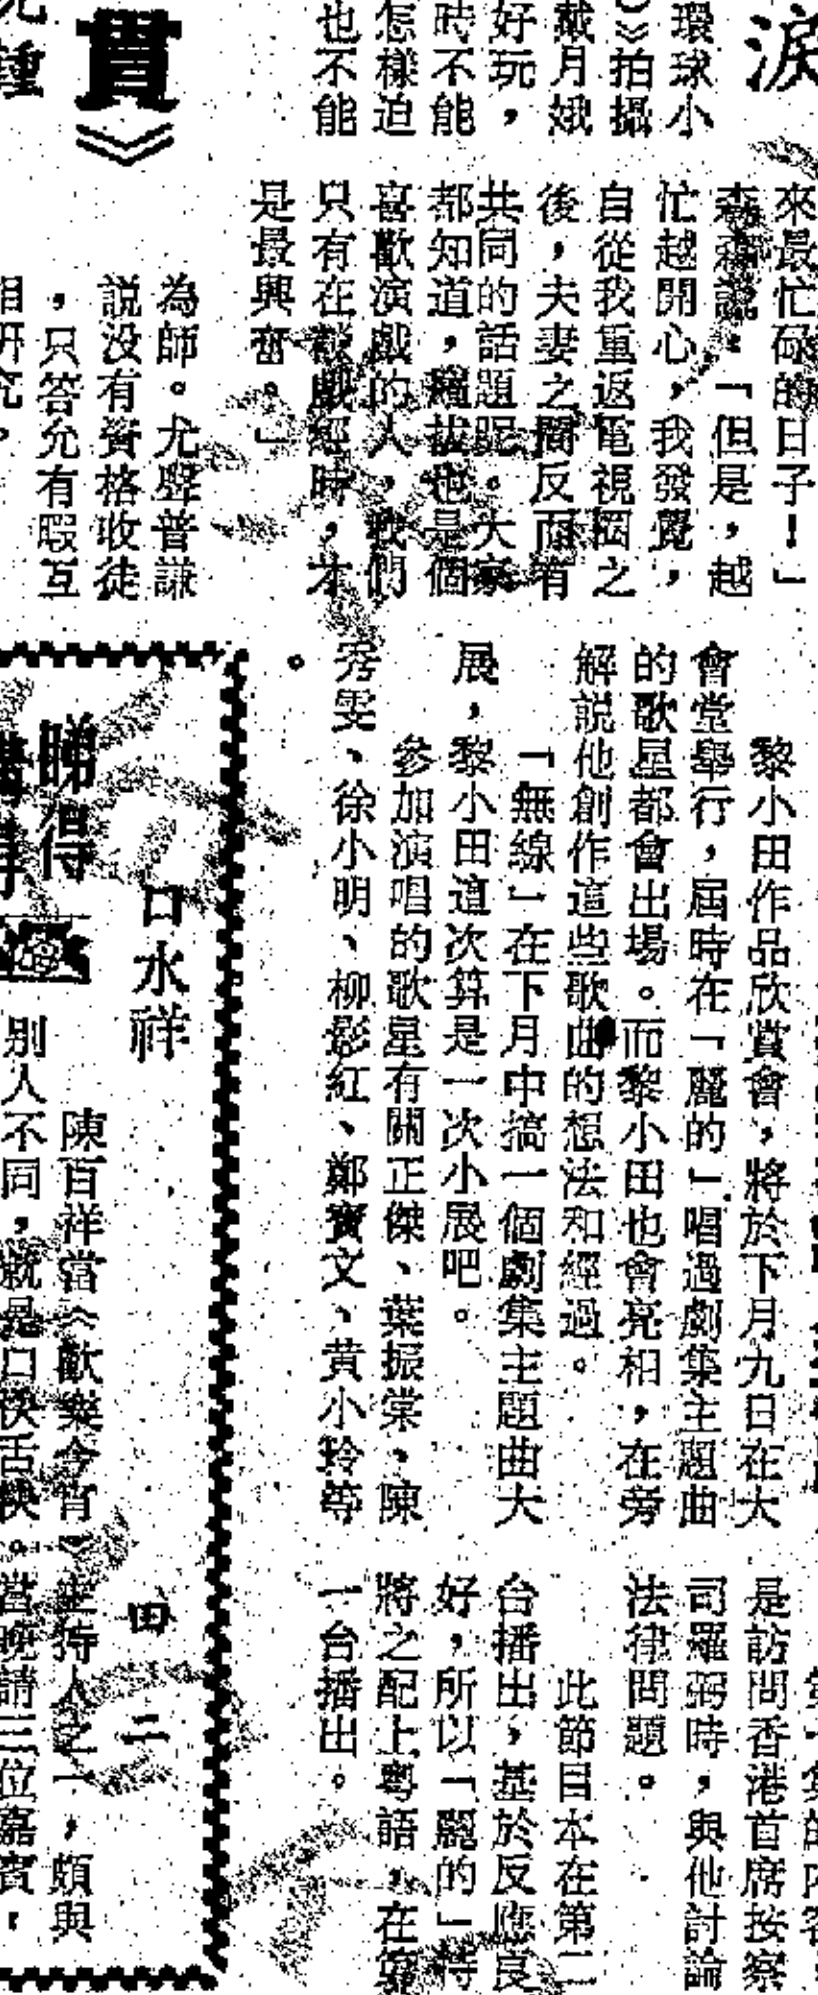 淚
環球小
》拍攝
戴月娥
好玩，
時不能
怎樣迫
也不能
貫》
鍾
來最忙碌的日子！」
森森說。「但是，越
忙越開心，我發覺，
自從我重返電視圈之
後，夫妻之間反而有
共同的話題呢。大家
都知道，羅拔也是個
喜歡演戲的人，我們
只有在談戲經時，才
是最興奮。」
為師。尤聲普謙
說沒有資格收徒
，只答允有暇互
相研究，
黎小田作品欣賞會，將於下月九日在大
會堂舉行，屆時在「麗的」唱過劇集主題曲
的歌星都會出場。而黎小田也會亮相，在旁
解說他創作這些歌曲的想法和經過。
「無線」在下月中搞一個劇集主題曲大
展，黎小田這次算是一次小展吧。
參加演唱的歌星有關正傑、葉振棠、陳
秀雯、徐小明、柳影紅、鄭寶文、黃小玲等
。
第一集的內容，
是訪問香港首席按察
司羅弼時，與他討論
法律問題。
此節目本在第二
台播出，基於反應良
好，所以「麗的」特
將之配上粵語，在第
一台播出。
睇得
口水祥
田二
陳百祥當《歡樂今宵》主持人之一，頗與
別人不同，就是口快舌快。當晚請三位嘉賓，